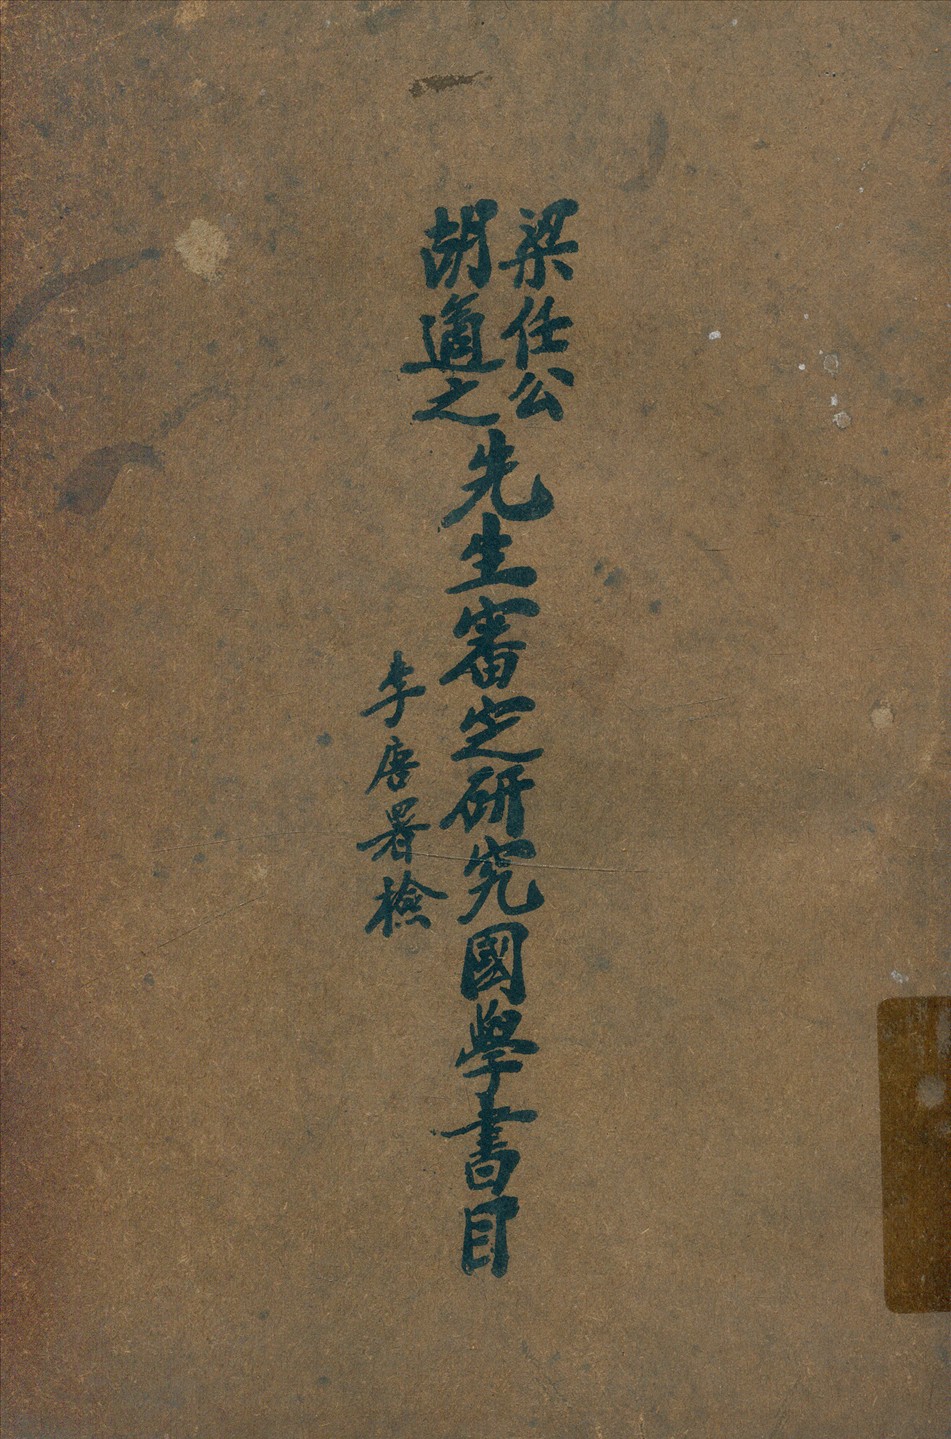 梁任公
胡適之
先生審定研究國學書目
李唐署檢